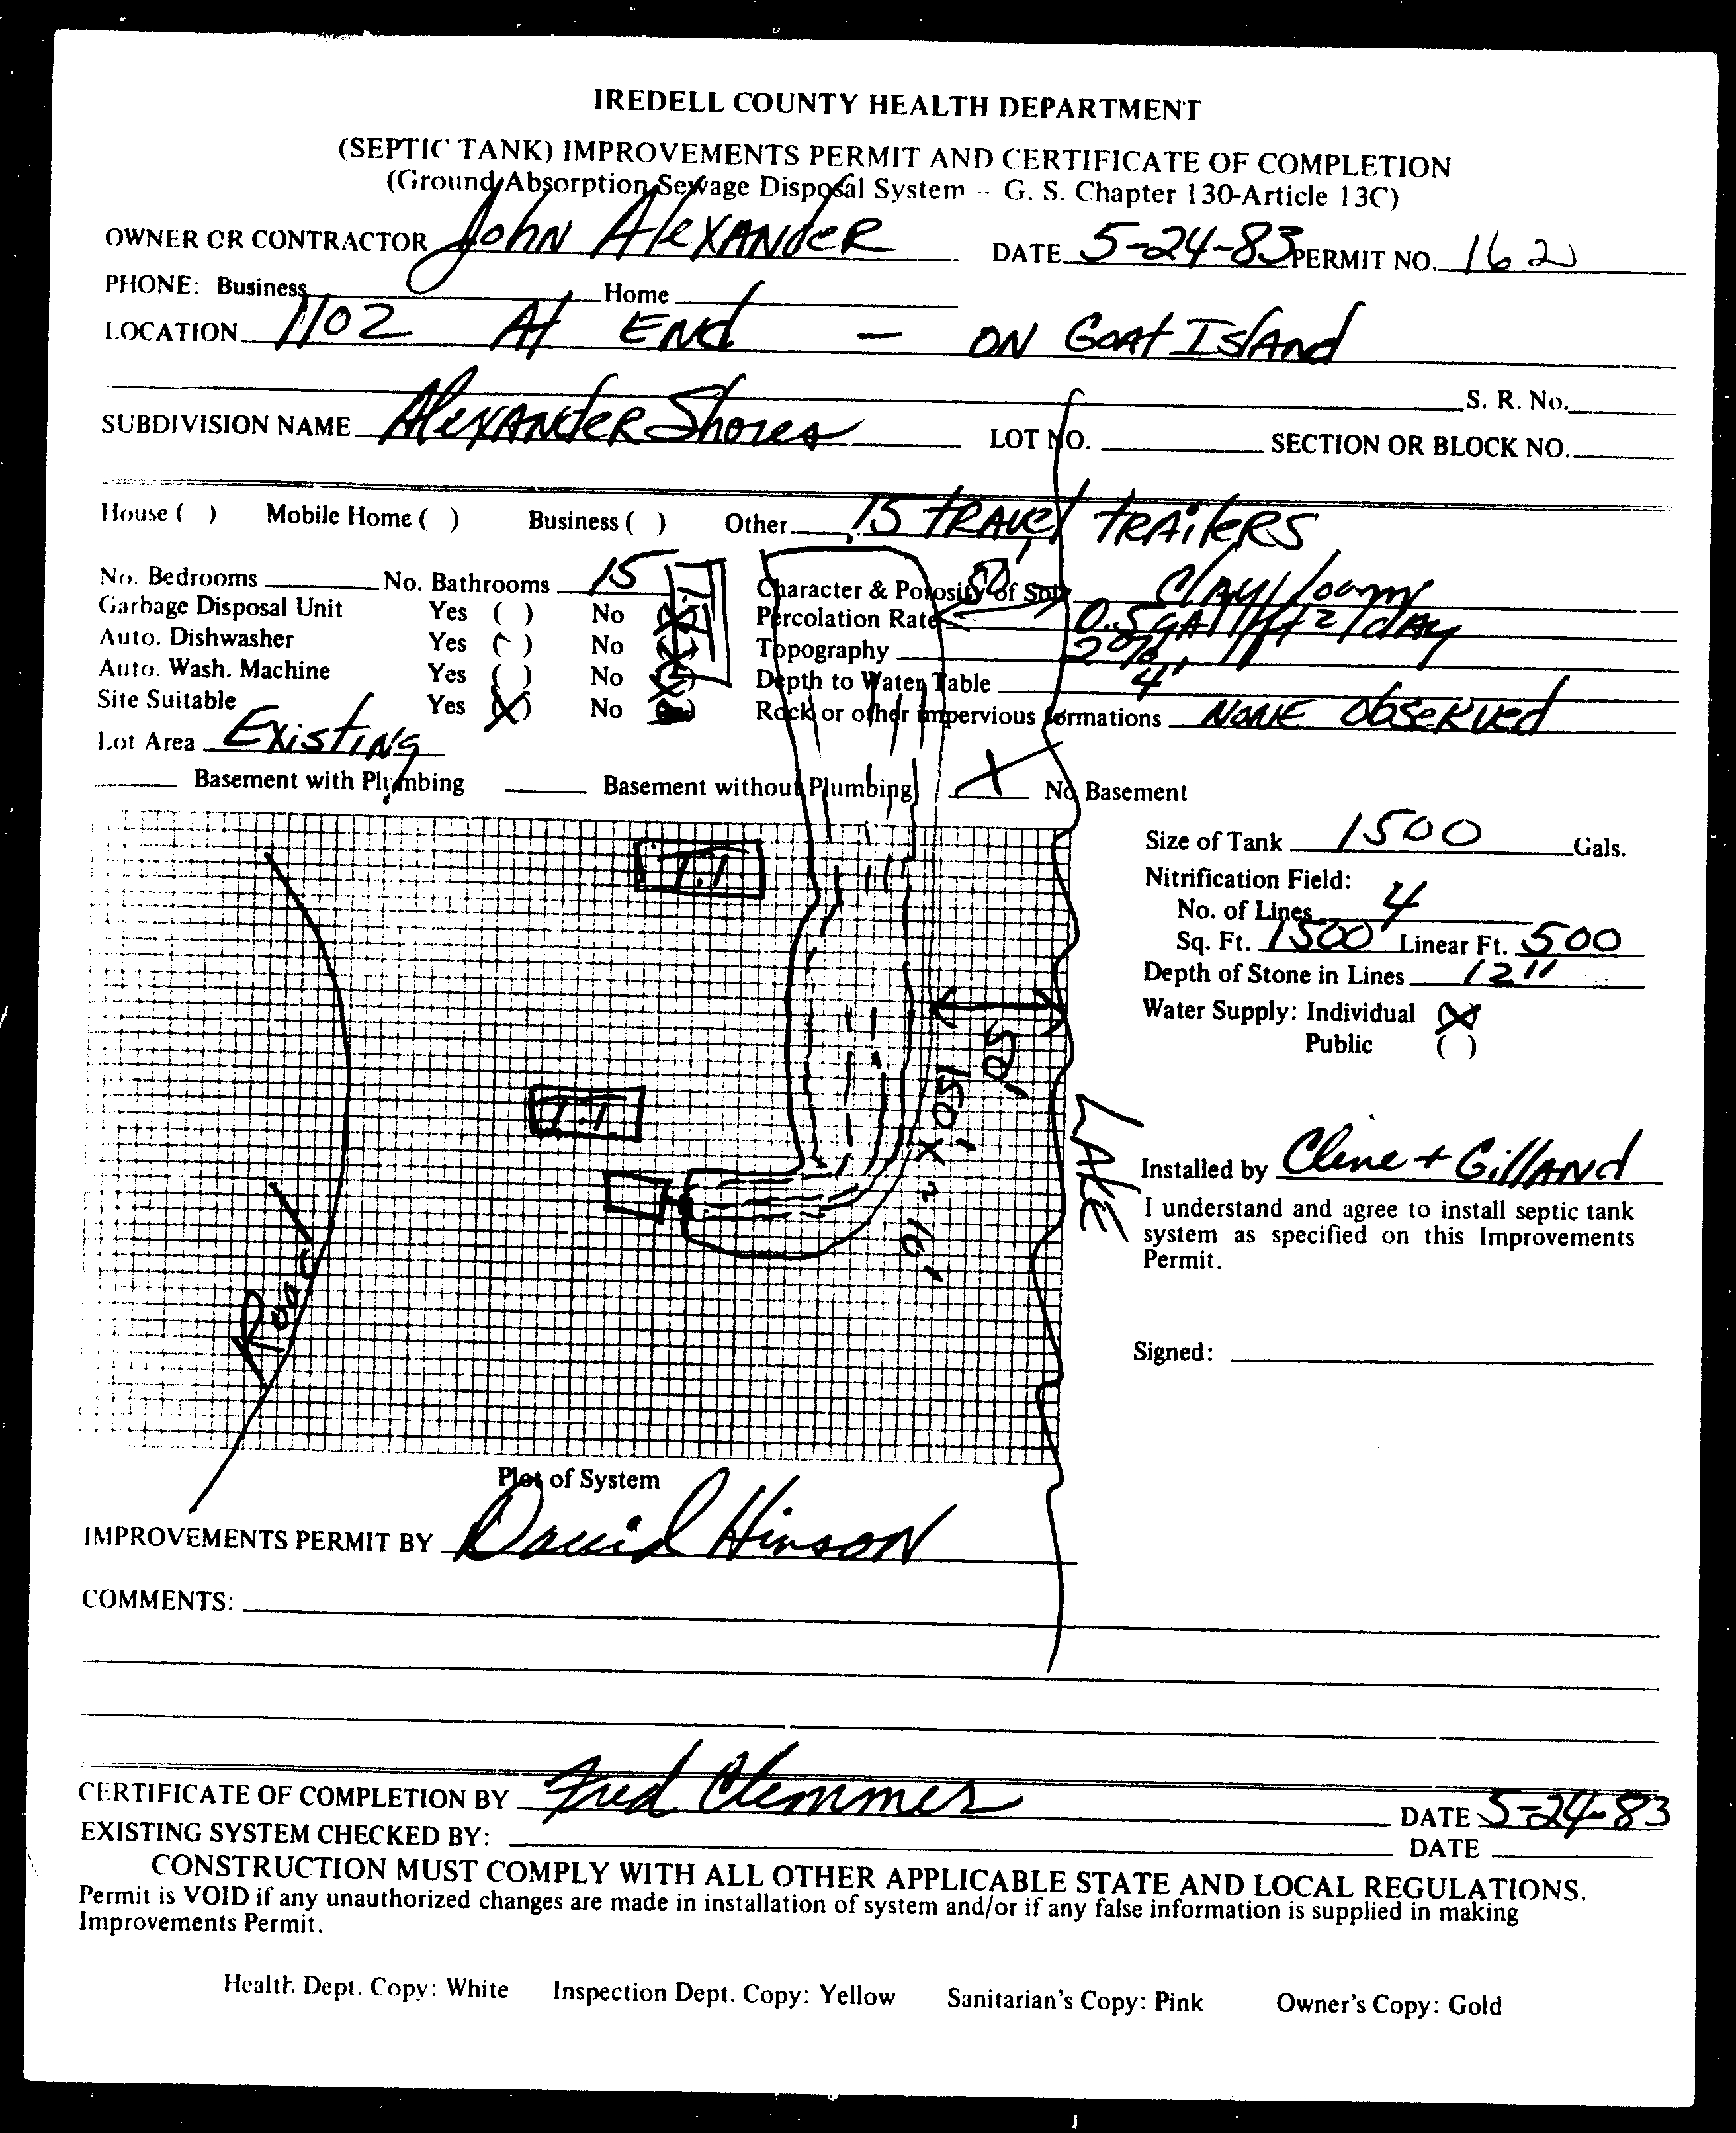 IREDELL COUNTY HEALTH DEPARTMENT
(SEPTIC TANK) IMPROVEMENTS PERMIT AND CERTIFICATE OF COMPLETION
(Ground Absorption Sewage Disposal System -- G. S. Chapter 130-Article 13C)
OWNER OR CONTRACTOR John Alexander DATE 5-24-83 PERMIT NO. 162
PHONE: Business Home
LOCATION 1102 At End - ON Goat Island
S. R. No.
SUBDIVISION NAME Alexander Shores LOT NO. SECTION OR BLOCK NO.
House ( ) Mobile Home ( ) Business ( ) Other 15 travel trailers
No. Bedrooms No. Bathrooms 15 Character & Porosity of Soil Clay/loamy
Garbage Disposal Unit Yes ( ) No (X) Percolation Rate 0.5 gal/ft2/day
Auto. Dishwasher Yes ( ) No (X) Topography 2%
Auto. Wash. Machine Yes ( ) No (X) Depth to Water Table 4'
Site Suitable Yes (X) No ( ) Rock or other impervious formations NONE Observed
Lot Area Existing
Basement with Plumbing Basement without Plumbing X No Basement
50'
T.T
T.T
T.T
50'
150' X
10'
LAKE
Road
Size of Tank 1500 Gals.
Nitrification Field:
No. of Lines 4
Sq. Ft. 1500 Linear Ft. 500
Depth of Stone in Lines 12"
Water Supply: Individual (X)
Public ( )
Installed by Cline + Gilland
I understand and agree to install septic tank
system as specified on this Improvements
Permit.
Signed:
Plot of System
IMPROVEMENTS PERMIT BY David Hinson
COMMENTS:
CERTIFICATE OF COMPLETION BY Fred Clemmer DATE 5-24-83
EXISTING SYSTEM CHECKED BY: DATE
CONSTRUCTION MUST COMPLY WITH ALL OTHER APPLICABLE STATE AND LOCAL REGULATIONS.
Permit is VOID if any unauthorized changes are made in installation of system and/or if any false information is supplied in making
Improvements Permit.
Health Dept. Copy: White Inspection Dept. Copy: Yellow Sanitarian's Copy: Pink Owner's Copy: Gold